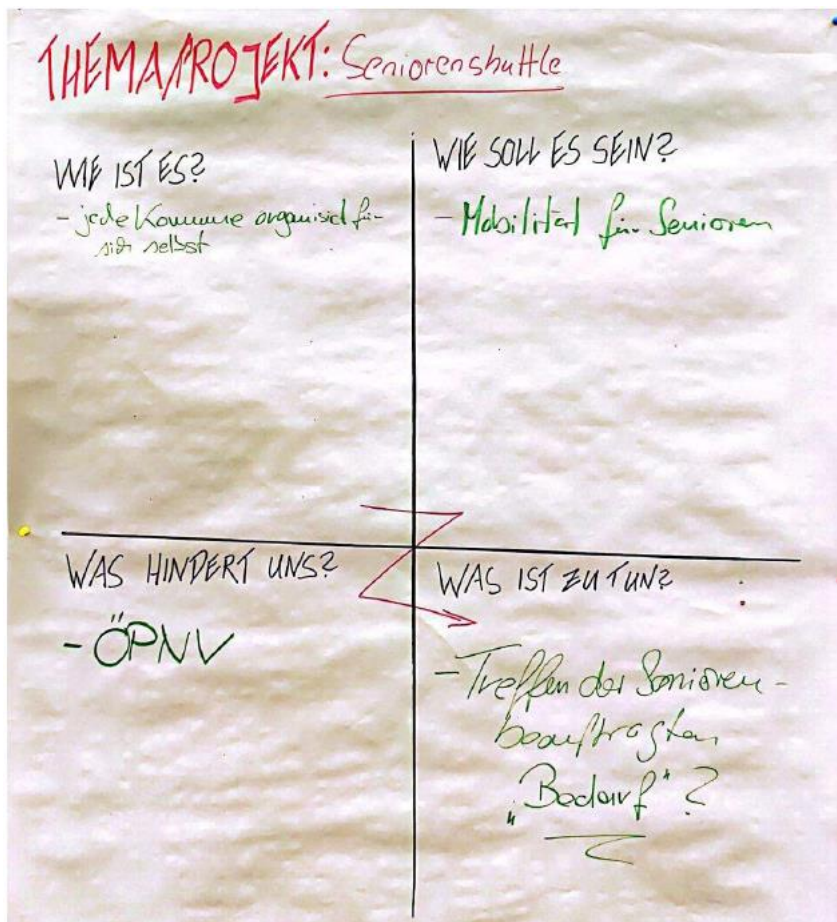 THEMA/PROJEKT: Seniorenshuttle
WIE IST ES?
- jede Kommune organisiert für
sich selbst
WIE SOLL ES SEIN?
- Mobilität für Senioren
WAS HINDERT UNS?
- ÖPNV
WAS IST ZU TUN?
- Treffen der Senioren-
beauftragten
„Bedarf“?